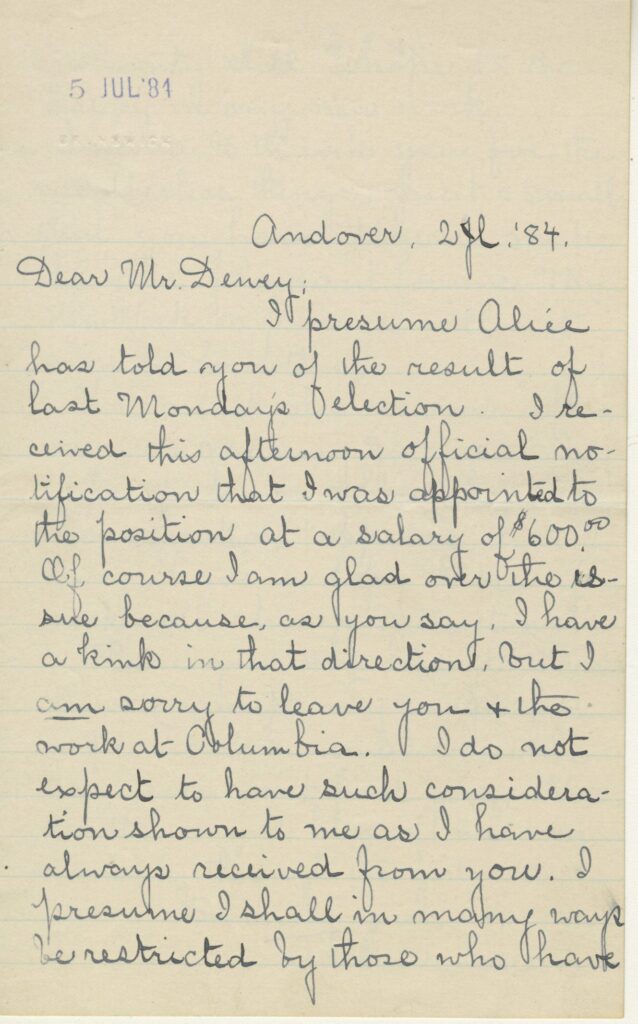 5 JUL '84
Andover, 2 Jl. '84.
Dear Mr. Dewey:
I presume Alice
has told you of the result of
last Monday's election. I re-
ceived this afternoon official no-
tification that I was appointed to
the position at a salary of $600.00
Of course I am glad over the is-
sue because, as you say, I have
a kink in that direction, but I
am sorry to leave you + the
work at Columbia. I do not
expect to have such considera-
tion shown to me as I have
always received from you. I
presume I shall in many ways
be restricted by those who have